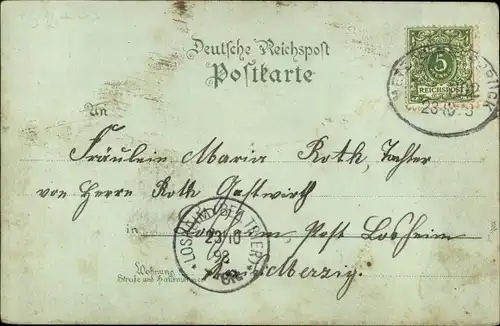 Deutsche Reichspost
Postkarte
5
REICHSPOST
23 10
An
Fräulein Maria Roth, Tochter
von Herrn Roth Gastwirth
in Post Losheim
LOSHEIM (BEZ. TRIER)
23 10
98
Wohnung
Straße und Hausnummer
Merzig.